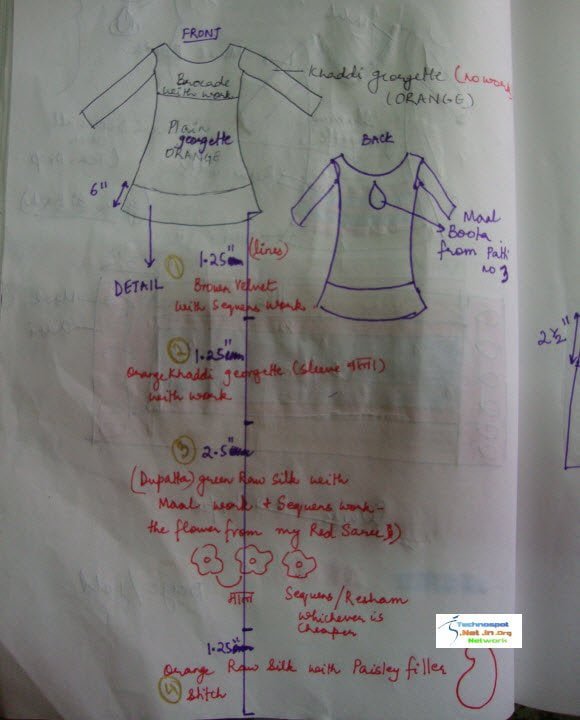 FRONT
Brocade
with work
Khaddi georgette (no work
(ORANGE)
Plain
georgette
ORANGE
6"
BACK
Maal
Boota
from Patti
no 3
DETAIL
1 1.25" (lines)
Brown Velvet
with Sequens work
2½"
2 1.25"
Orange Khaddi georgette (sleeve वाला)
with work
3 2.5"
(Dupatta) green Raw Silk with
Maal work + Sequens work -
the flower from my Red Saree)
माल
Sequens/Resham
whichever is
cheaper
1.25"
Orange Raw Silk with Paisley filler
4 stitch
Technospot
.Net .In .Org
Network